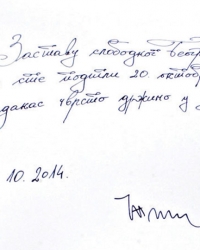 Заставу слободног Беогр
сте подигли 20. октоб
данас чврсто држимо у
10. 2014.